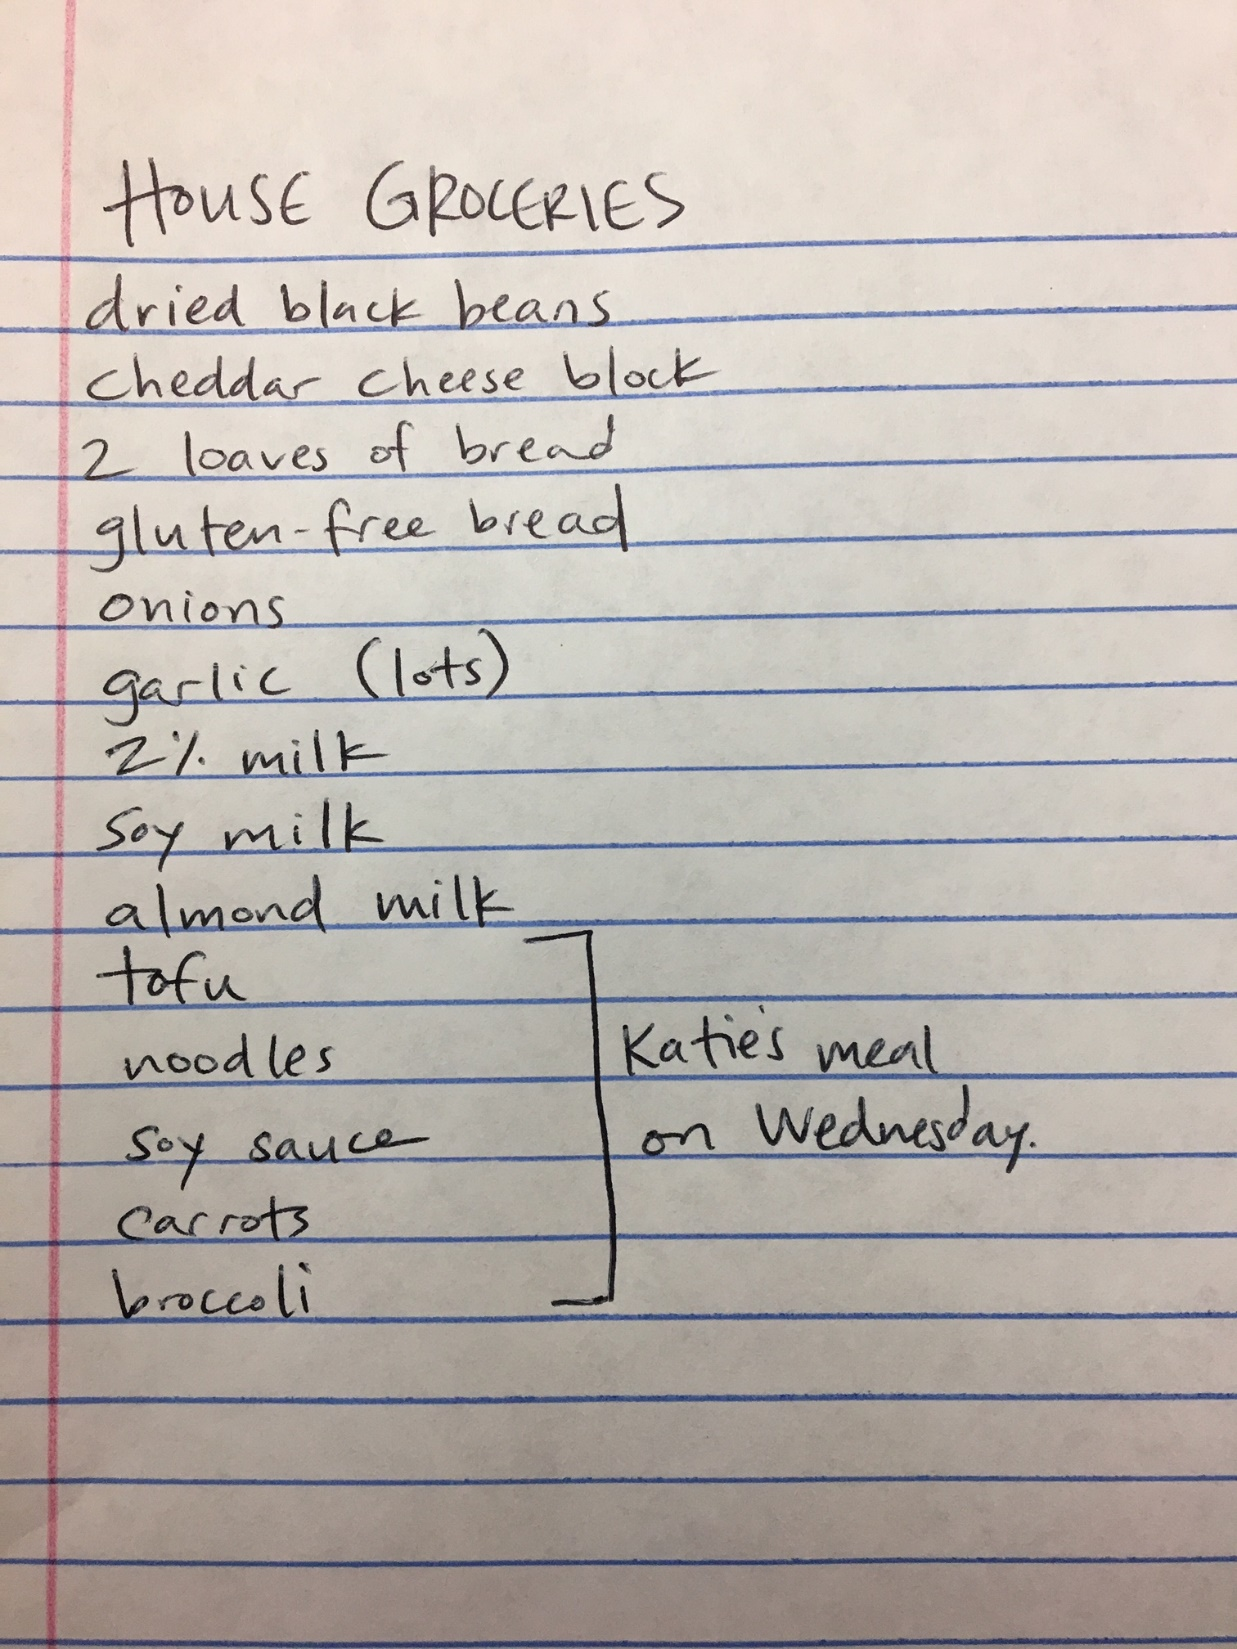 HOUSE GROCERIES
dried black beans
cheddar cheese block
2 loaves of bread
gluten-free bread
onions
garlic (lots)
2% milk
soy milk
almond milk
tofu
noodles
soy sauce
carrots
broccoli
Katie's meal
on Wednesday.